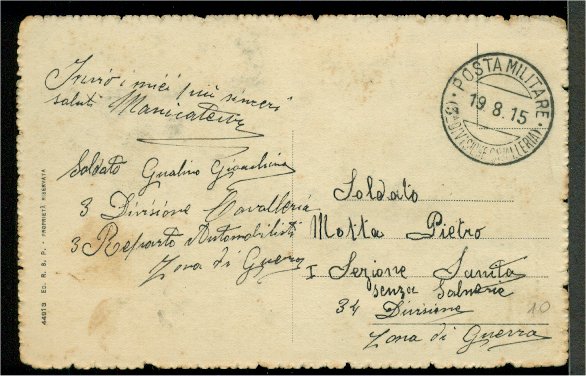 Invio i miei più sinceri
saluti
Soldato
3 Divisione Cavalleria
3 Reparto Automobilisti
Zona di Guerra
POSTA MILITARE
19.8.15
Soldato
Motta Pietro
I Sezione Sanità
senza Salmerie
34 Divisione
Zona di Guerra
10
44913 ED. R. B. P. - PROPRIETÀ RISERVATA